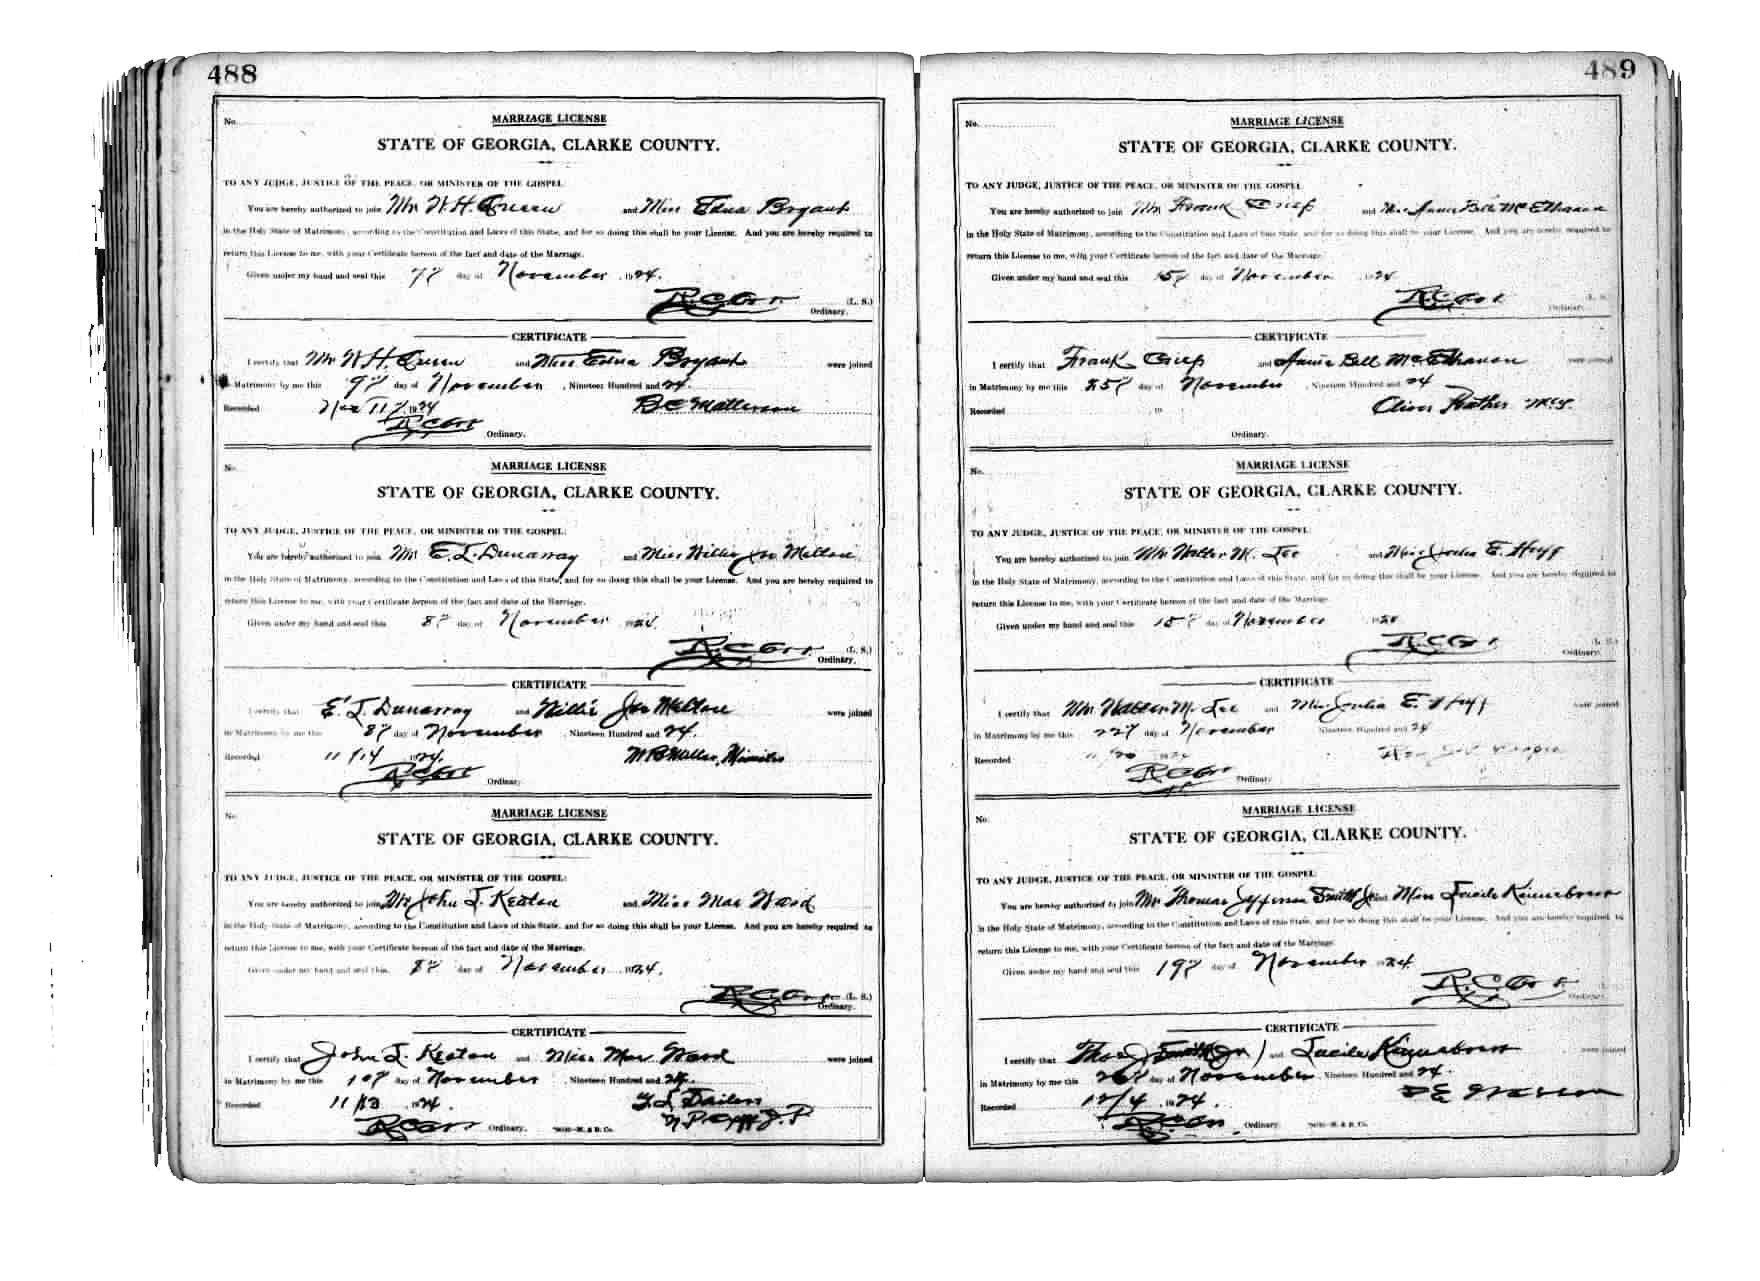 488
No.
MARRIAGE LICENSE
STATE OF GEORGIA, CLARKE COUNTY.
TO ANY JUDGE, JUSTICE OF THE PEACE, OR MINISTER OF THE GOSPEL:
You are hereby authorized to join Mr W.H. and Miss Edna Bryant
in the Holy State of Matrimony, according to the Constitution and Laws of this State, and for so doing this shall be your License. And you are hereby required to
return this License to me, with your Certificate hereon of the fact and date of the Marriage.
Given under my hand and seal this 7th day of November 1924.
R.C. Orr (L. S.)
Ordinary.
CERTIFICATE
I certify that Mr W.H. and Miss Edna Bryant were joined
in Matrimony by me this 9th day of November, Nineteen Hundred and 24.
Recorded Nov 11th 1924 B C Matterson
R C Orr Ordinary.
No.
MARRIAGE LICENSE
STATE OF GEORGIA, CLARKE COUNTY.
TO ANY JUDGE, JUSTICE OF THE PEACE, OR MINISTER OF THE GOSPEL:
You are hereby authorized to join Mr. E. L. Dunaway and Miss Willie
in the Holy State of Matrimony, according to the Constitution and Laws of this State, and for so doing this shall be your License. And you are hereby required to
return this License to me, with your Certificate hereon of the fact and date of the Marriage.
Given under my hand and seal this 8th day of November 1924.
R.C. Orr (L. S.)
Ordinary.
CERTIFICATE
I certify that E. L. Dunaway and Willie were joined
in Matrimony by me this 8th day of November, Nineteen Hundred and 24.
Recorded 11/14 1924. Minister
R C Orr Ordinary.
No.
MARRIAGE LICENSE
STATE OF GEORGIA, CLARKE COUNTY.
TO ANY JUDGE, JUSTICE OF THE PEACE, OR MINISTER OF THE GOSPEL:
You are hereby authorized to join Mr John L. Keaton and Miss Mae Wood
in the Holy State of Matrimony, according to the Constitution and Laws of this State, and for so doing this shall be your License. And you are hereby required to
return this License to me, with your Certificate hereon of the fact and date of the Marriage.
Given under my hand and seal this 8th day of November 1924.
R.C. Orr (L. S.)
Ordinary.
CERTIFICATE
I certify that John L. Keaton and Miss Mae Wood were joined
in Matrimony by me this 10th day of November, Nineteen Hundred and 24.
Recorded 1924.
R C Orr Ordinary. J. P.
489
No.
MARRIAGE LICENSE
STATE OF GEORGIA, CLARKE COUNTY.
TO ANY JUDGE, JUSTICE OF THE PEACE, OR MINISTER OF THE GOSPEL
You are hereby authorized to join Mr Frank and Miss Annie Bell McElhanon
in the Holy State of Matrimony, according to the Constitution and Laws of this State, and for so doing this shall be your License. And you are hereby required to
return this License to me, with your Certificate hereon of the fact and date of the Marriage.
Given under my hand and seal this 15th day of November 1924
R.C. Orr (L. S.
Ordinary.
CERTIFICATE
I certify that Frank and Annie Bell McElhanon were joined
in Matrimony by me this 25th day of November, Nineteen Hundred and 24
Recorded 19
Ordinary.
No.
MARRIAGE LICENSE
STATE OF GEORGIA, CLARKE COUNTY.
TO ANY JUDGE, JUSTICE OF THE PEACE, OR MINISTER OF THE GOSPEL
You are hereby authorized to join Mr. Walter M. Lee and Miss Julia E. Huff
in the Holy State of Matrimony, according to the Constitution and Laws of this State, and for so doing this shall be your License. And you are hereby required to
return this License to me, with your Certificate hereon of the fact and date of the Marriage.
Given under my hand and seal this 15th day of November
R.C. Orr (L. S.)
Ordinary.
CERTIFICATE
I certify that Mr. Walter M. Lee and Miss Julia E. Huff were joined
in Matrimony by me this 22th day of November Nineteen Hundred and 24
Recorded
R C Orr Ordinary.
No.
MARRIAGE LICENSE
STATE OF GEORGIA, CLARKE COUNTY.
TO ANY JUDGE, JUSTICE OF THE PEACE, OR MINISTER OF THE GOSPEL
You are hereby authorized to join Mr. Thomas Jefferson Smith Jr and Miss Lucile Kinnebrew
in the Holy State of Matrimony, according to the Constitution and Laws of this State, and for so doing this shall be your License. And you are hereby required to
return this License to me, with your Certificate hereon of the fact and date of the Marriage.
Given under my hand and seal this 19th day of November 1924.
R.C. Orr
Ordinary.
CERTIFICATE
I certify that Thos J Smith Jr and Lucile Kinnebrew were joined
in Matrimony by me this 26th day of November Nineteen Hundred and 24.
Recorded 12/4 1924.
R C Orr Ordinary.